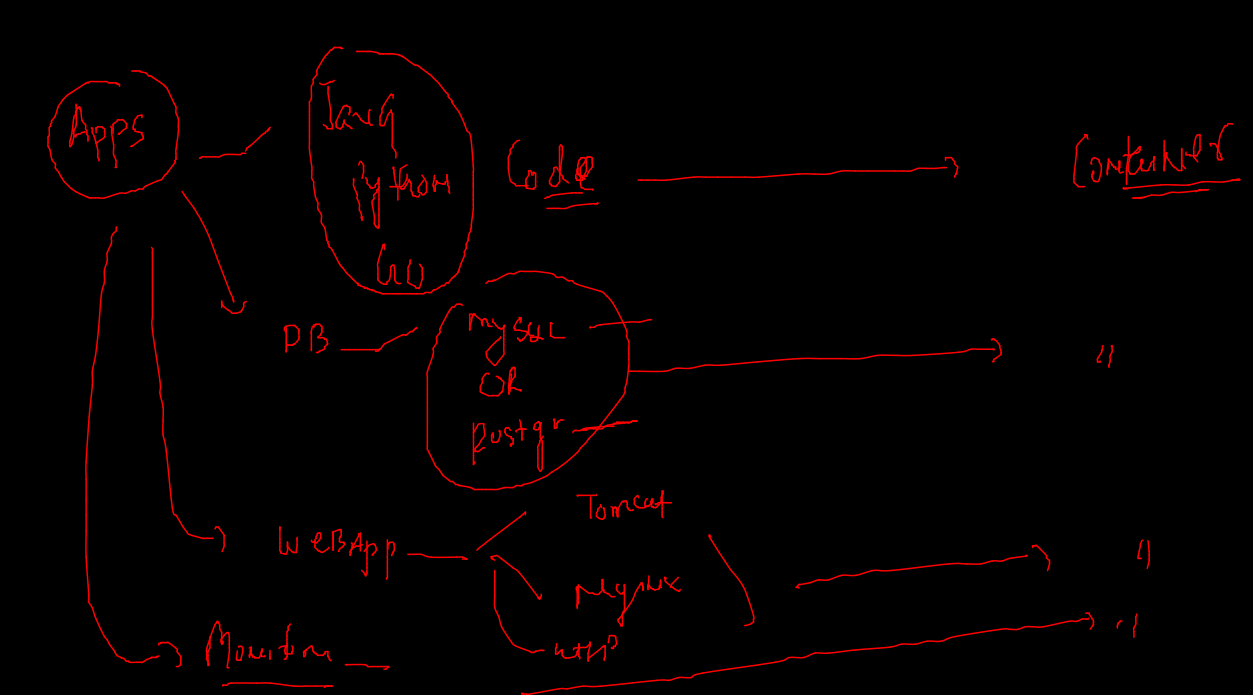 Apps
Java
Python
Go
Code
Container
DB
MySQL
OR
Postgr
"
WEBApp
Tomcat
"
Monitor
"